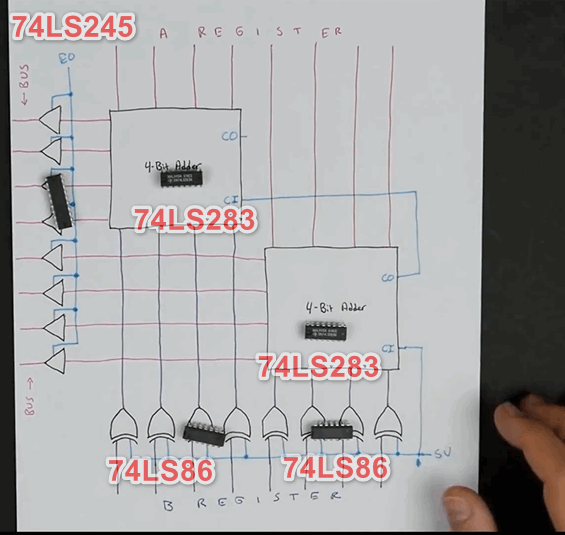 74LS245
A REGISTER
EO
← BUS
CO
4-Bit Adder
CI
74LS283
CO
4-Bit Adder
CI
74LS283
SU
74LS86
74LS86
BUS →
B REGISTER